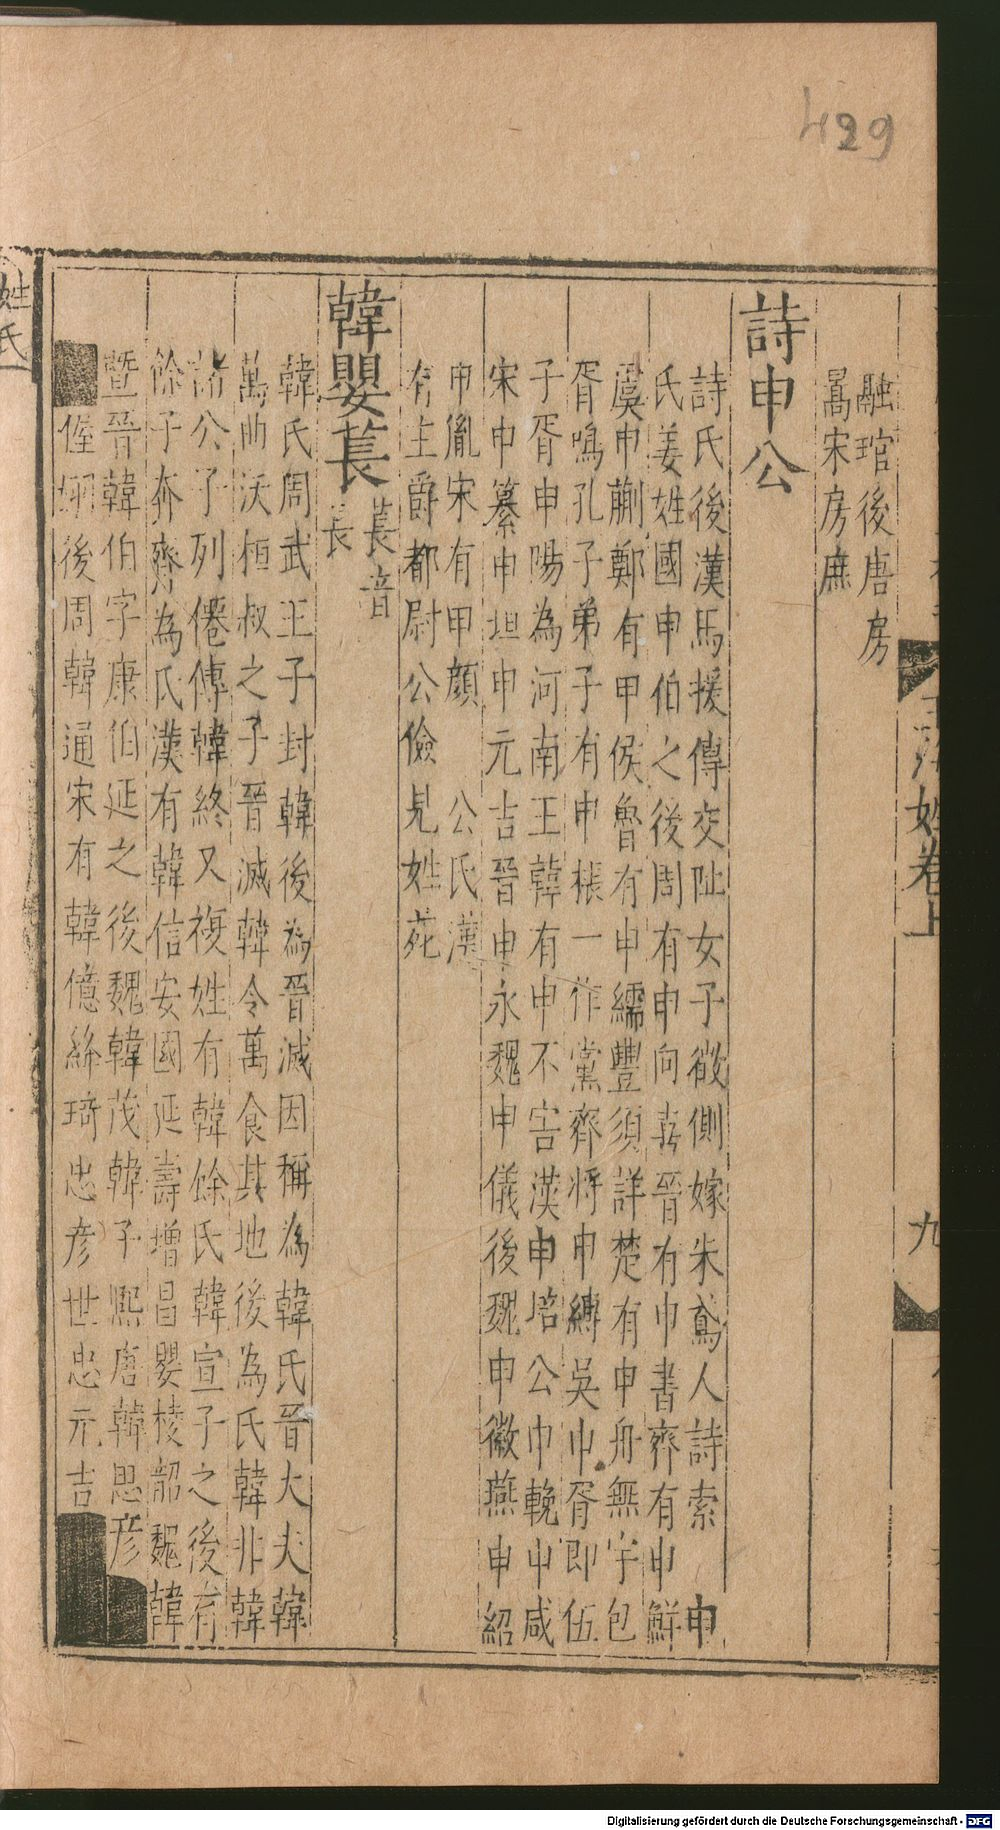 429
融琯後唐房
暠宋房庶
詩申公
詩氏後漢馬援傳交阯女子徵側嫁朱鳶人詩索　申
氏姜姓國申伯之後周有申向喜晉有申書齊有申鮮
虞申蒯鄭有申侯魯有申繻豐須詳楚有申舟無宇包
胥鳴孔子弟子有申棖一作黨齊將申縳吳申胥即伍
子胥申陽為河南王韓有申不害漢申培公申輓申咸
宋申纂申坦申元吉晉申永魏申儀後魏申徽燕申紹
申胤宋有甲顏　公氏漢
有主爵都尉公儉見姓苑
韓嬰萇
萇音
長
韓氏周武王子封韓後為晉滅因稱為韓氏晉大夫韓
萬曲沃桓叔之子晉滅韓令萬食其地後為氏韓非韓
諸公子列僊傳韓終又複姓有韓餘氏韓宣子之後有
餘子奔齊為氏漢有韓信安國延壽增昌嬰棱韶魏韓
暨晉韓伯字康伯延之後魏韓茂韓子熙唐韓思彥
偓後周韓通宋有韓億絳琦忠彥世忠元吉
玉海姓卷上
九
姓氏
Digitalisierung gefördert durch die Deutsche Forschungsgemeinschaft - DFG